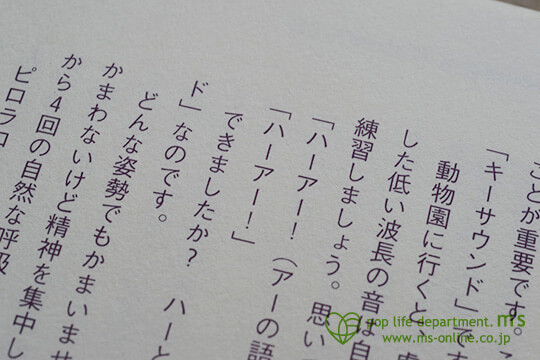 ことが重要です。
「キーサウンド」で
動物園に行くと
した低い波長の音は自
練習しましょう。思い
「ハーアー！（アーの語
「ハーアー！」
できましたか？　ハーと
ド」なのです。
どんな姿勢でもかまいませ
かまわないけど精神を集中し
から4回の自然な呼吸
ピロラロ
pop life department. m's
www.ms-online.co.jp